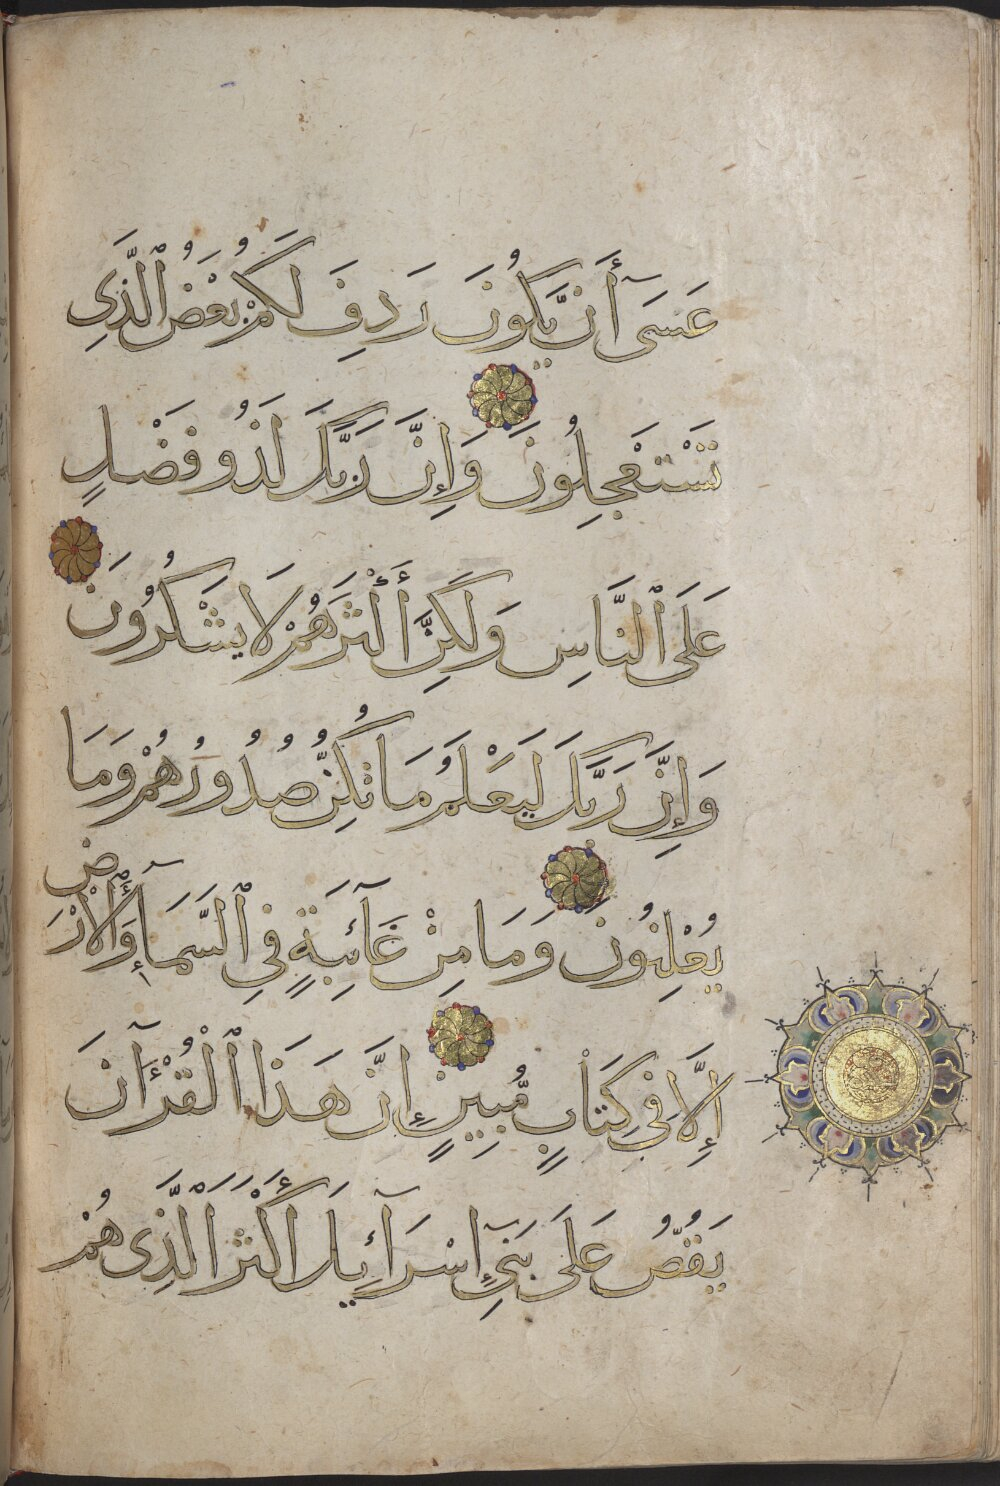 عَسَىٰٓ أَن يَكُونَ رَدِفَ لَكُمْ بَعْضُ ٱلَّذِى
تَسْتَعْجِلُونَ وَإِنَّ رَبَّكَ لَذُو فَضْلٍ
عَلَى ٱلنَّاسِ وَلَكِنَّ أَكْثَرَهُمْ لَا يَشْكُرُونَ
وَإِنَّ رَبَّكَ لَيَعْلَمُ مَا تُكِنُّ صُدُورُهُمْ وَمَا
يُعْلِنُونَ وَمَا مِنْ غَآئِبَةٍ فِى ٱلسَّمَآءِ وَٱلْأَرْضِ
إِلَّا فِى كِتَٰبٍ مُّبِينٍ إِنَّ هَذَا ٱلْقُرْءَانَ
يَقُصُّ عَلَى بَنِىٓ إِسْرَآئِيلَ أَكْثَرَ ٱلَّذِى هُمْ